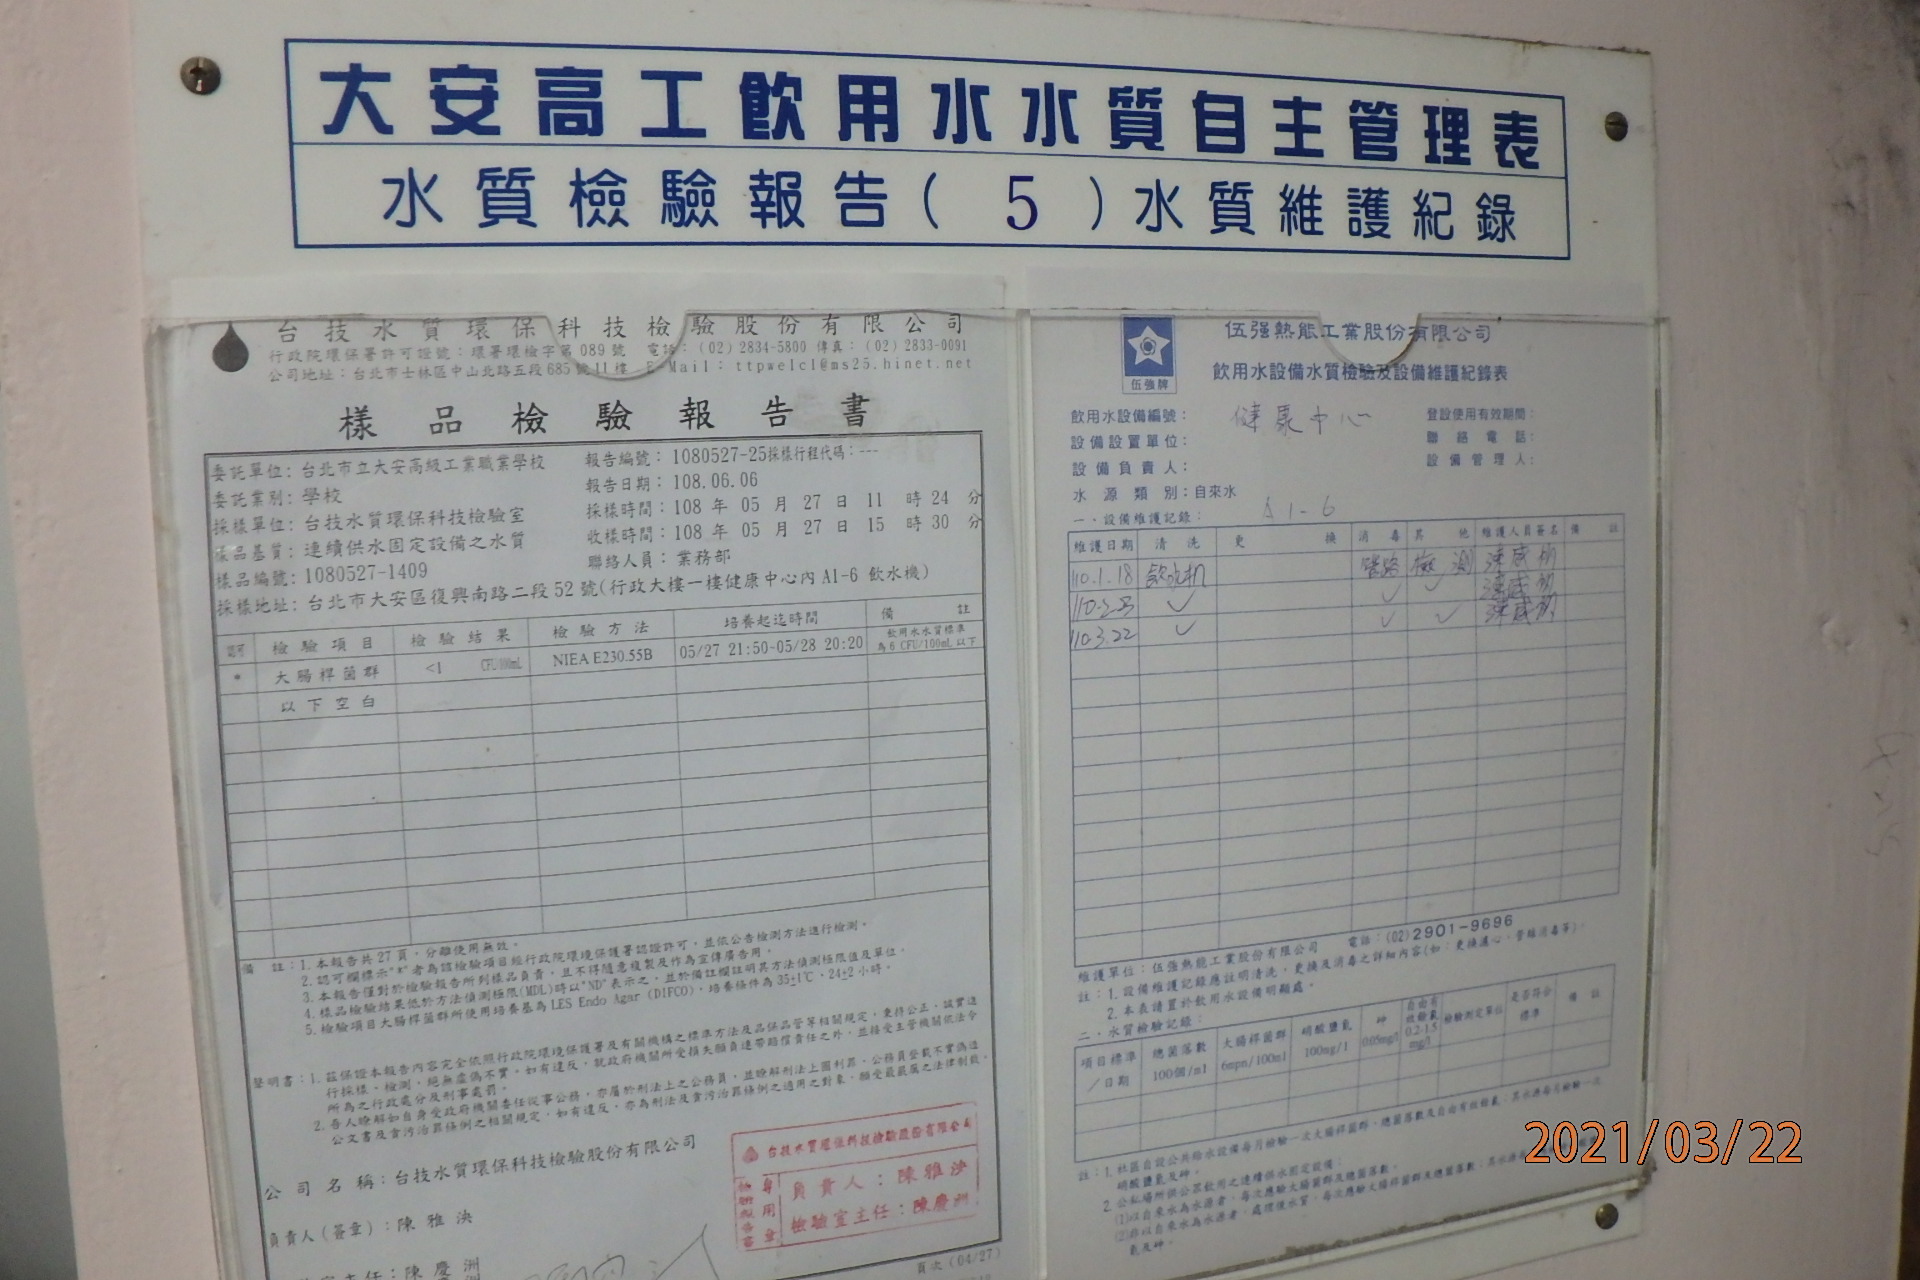 大安高工飲用水水質自主管理表
水質檢驗報告( 5 )水質維護紀錄
台技水質環保科技檢驗股份有限公司
行政院環保署許可證號：環署環檢字第 089 號 電話：(02) 2834-5800 傳真：(02) 2833-0091
公司地址：台北市士林區中山北路五段 685 號 11 樓 E-Mail：ttpwelcl@ms25.hinet.net
樣品檢驗報告書
委託單位：台北市立大安高級工業職業學校
委託業別：學校
採樣單位：台技水質環保科技檢驗室
樣品基質：連續供水固定設備之水質
樣品編號：1080527-1409
採樣地址：台北市大安區復興南路二段 52 號(行政大樓一樓健康中心內 A1-6 飲水機)
報告編號：1080527-25採樣行程代碼：---
報告日期：108.06.06
採樣時間：108 年 05 月 27 日 11 時 24 分
收樣時間：108 年 05 月 27 日 15 時 30 分
聯絡人員：業務部
認可 檢驗項目 檢驗結果 檢驗方法 培養起迄時間 備註
* 大腸桿菌群 <1 CFU/100mL NIEA E230.55B 05/27 21:50-05/28 20:20 飲用水水質標準為 6 CFU/100mL 以下
以下空白
備 註：1. 本報告共 27 頁，分離使用無效。
2. 認可欄標示"*"者為該檢驗項目經行政院環境保護署認證許可，並依公告檢測方法進行檢測。
3. 本報告僅對於檢驗報告所列樣品負責，且不得隨意複製及作為宣傳廣告用。
4. 樣品檢驗結果低於方法偵測極限(MDL)時以"ND"表示之，並於備註欄註明其方法偵測極限值及單位。
5. 檢驗項目大腸桿菌群所使用培養基為 LES Endo Agar (DIFCO)，培養條件為 35±1℃、24±2 小時。
聲明書：1. 茲保證本報告內容完全依照行政院環境保護署及有關機構之標準方法及品保品管等相關規定，秉持公正、誠實進
行採樣、檢測。絕無虛偽不實，如有違反，就政府機關所受損失願負連帶賠償責任之外，並接受主管機關依法令
所為之行政處分及刑事處罰。
2. 吾人瞭解如自身受政府機關委任從事公務，亦屬於刑法上之公務員，並瞭解刑法上圖利罪、公務員登載不實偽造
公文書及貪污治罪條例之相關規定，如有違反，亦為刑法及貪污治罪條例之適用之對象，願受最嚴厲之法律制裁。
公司名稱：台技水質環保科技檢驗股份有限公司
負責人(簽章)：陳雅泱
主任：陳慶洲
台技水質環保科技檢驗股份有限公司
負責人：陳雅泱
檢驗室主任：陳慶洲
頁次 (04/27)
伍強牌
伍强熱能工業股份有限公司
飲用水設備水質檢驗及設備維護紀錄表
飲用水設備編號： 健康中心
設備設置單位：
設備負責人：
水源類別：自來水
登設使用有效期間：
聯絡電話：
設備管理人：
一、設備維護記錄： A1-6
維護日期 清洗 更換 消毒 其他 維護人員簽名 備註
110.1.18 飲水机 管路 檢測
110.2.23 ✓ ✓ ✓
110.3.22 ✓ ✓ ✓
維護單位：伍強熱能工業股份有限公司 電話：(02)2901-9696
註：1. 設備維護記錄應註明清洗、更換及消毒之詳細內容(如：更換濾心、管線消毒等)。
2. 本表請置於飲用水設備明顯處。
二、水質檢驗記錄：
項目標準／日期 總菌落數 100個/ml 大腸桿菌群 6mpn/100ml 硝酸鹽氮 100mg/l 砷 0.05mg/l 自由有效餘氯 0.2-1.5 mg/l 檢驗測定單位 是否符合標準 備註
註：1. 社區自設公共給水設備每月檢驗一次大腸桿菌群、總菌落數及自由有效餘氯；其水源每月檢驗一次
硝酸鹽氮及砷。
2. 公私場所供公眾飲用之連續供水固定設備：
2021/03/22